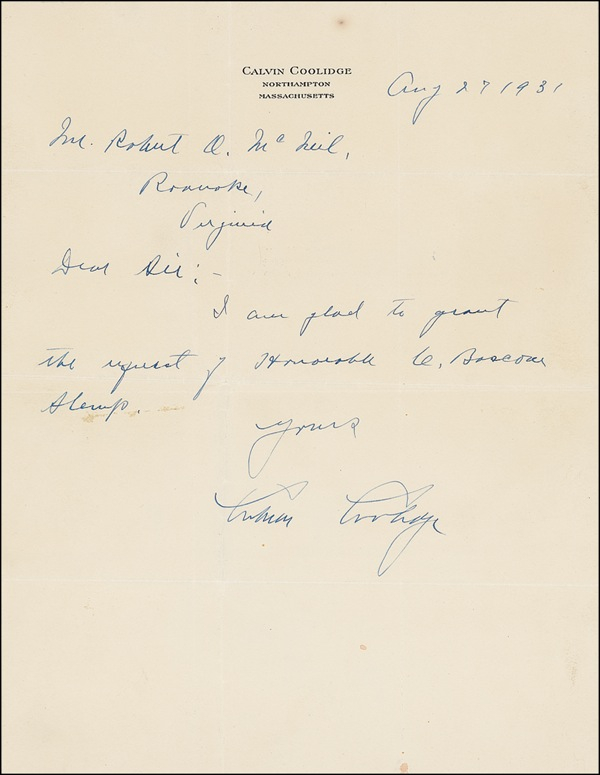 CALVIN COOLIDGE
NORTHAMPTON
MASSACHUSETTS
Aug 27 1931
Mr. Robert O. McNeil,
Roanoke,
Virginia
Dear Sir:-
I am glad to grant
the request of Honorable C. Bascom
Slemp.
Yours
Calvin Coolidge